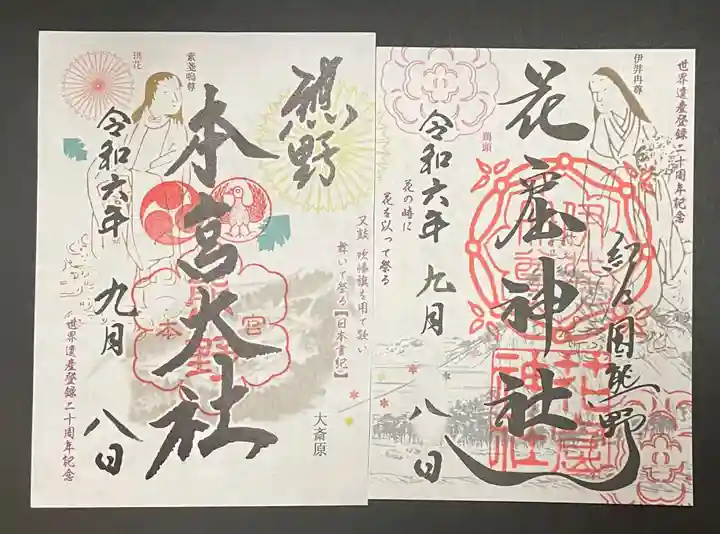 世界遺産登録二十周年記念
伊弉冉尊
花窟神社
紀乃国熊野
鶏頭
令和六年
九月
八日
花の時に
花を以って祭る
熊野
本宮大社
素戔嗚尊
令和六年
九月
八日
又鼓 吹幡旗を用て歌い
舞いて祭る【日本書紀】
大斎原
世界遺産登録二十周年記念
本
宮
熊野